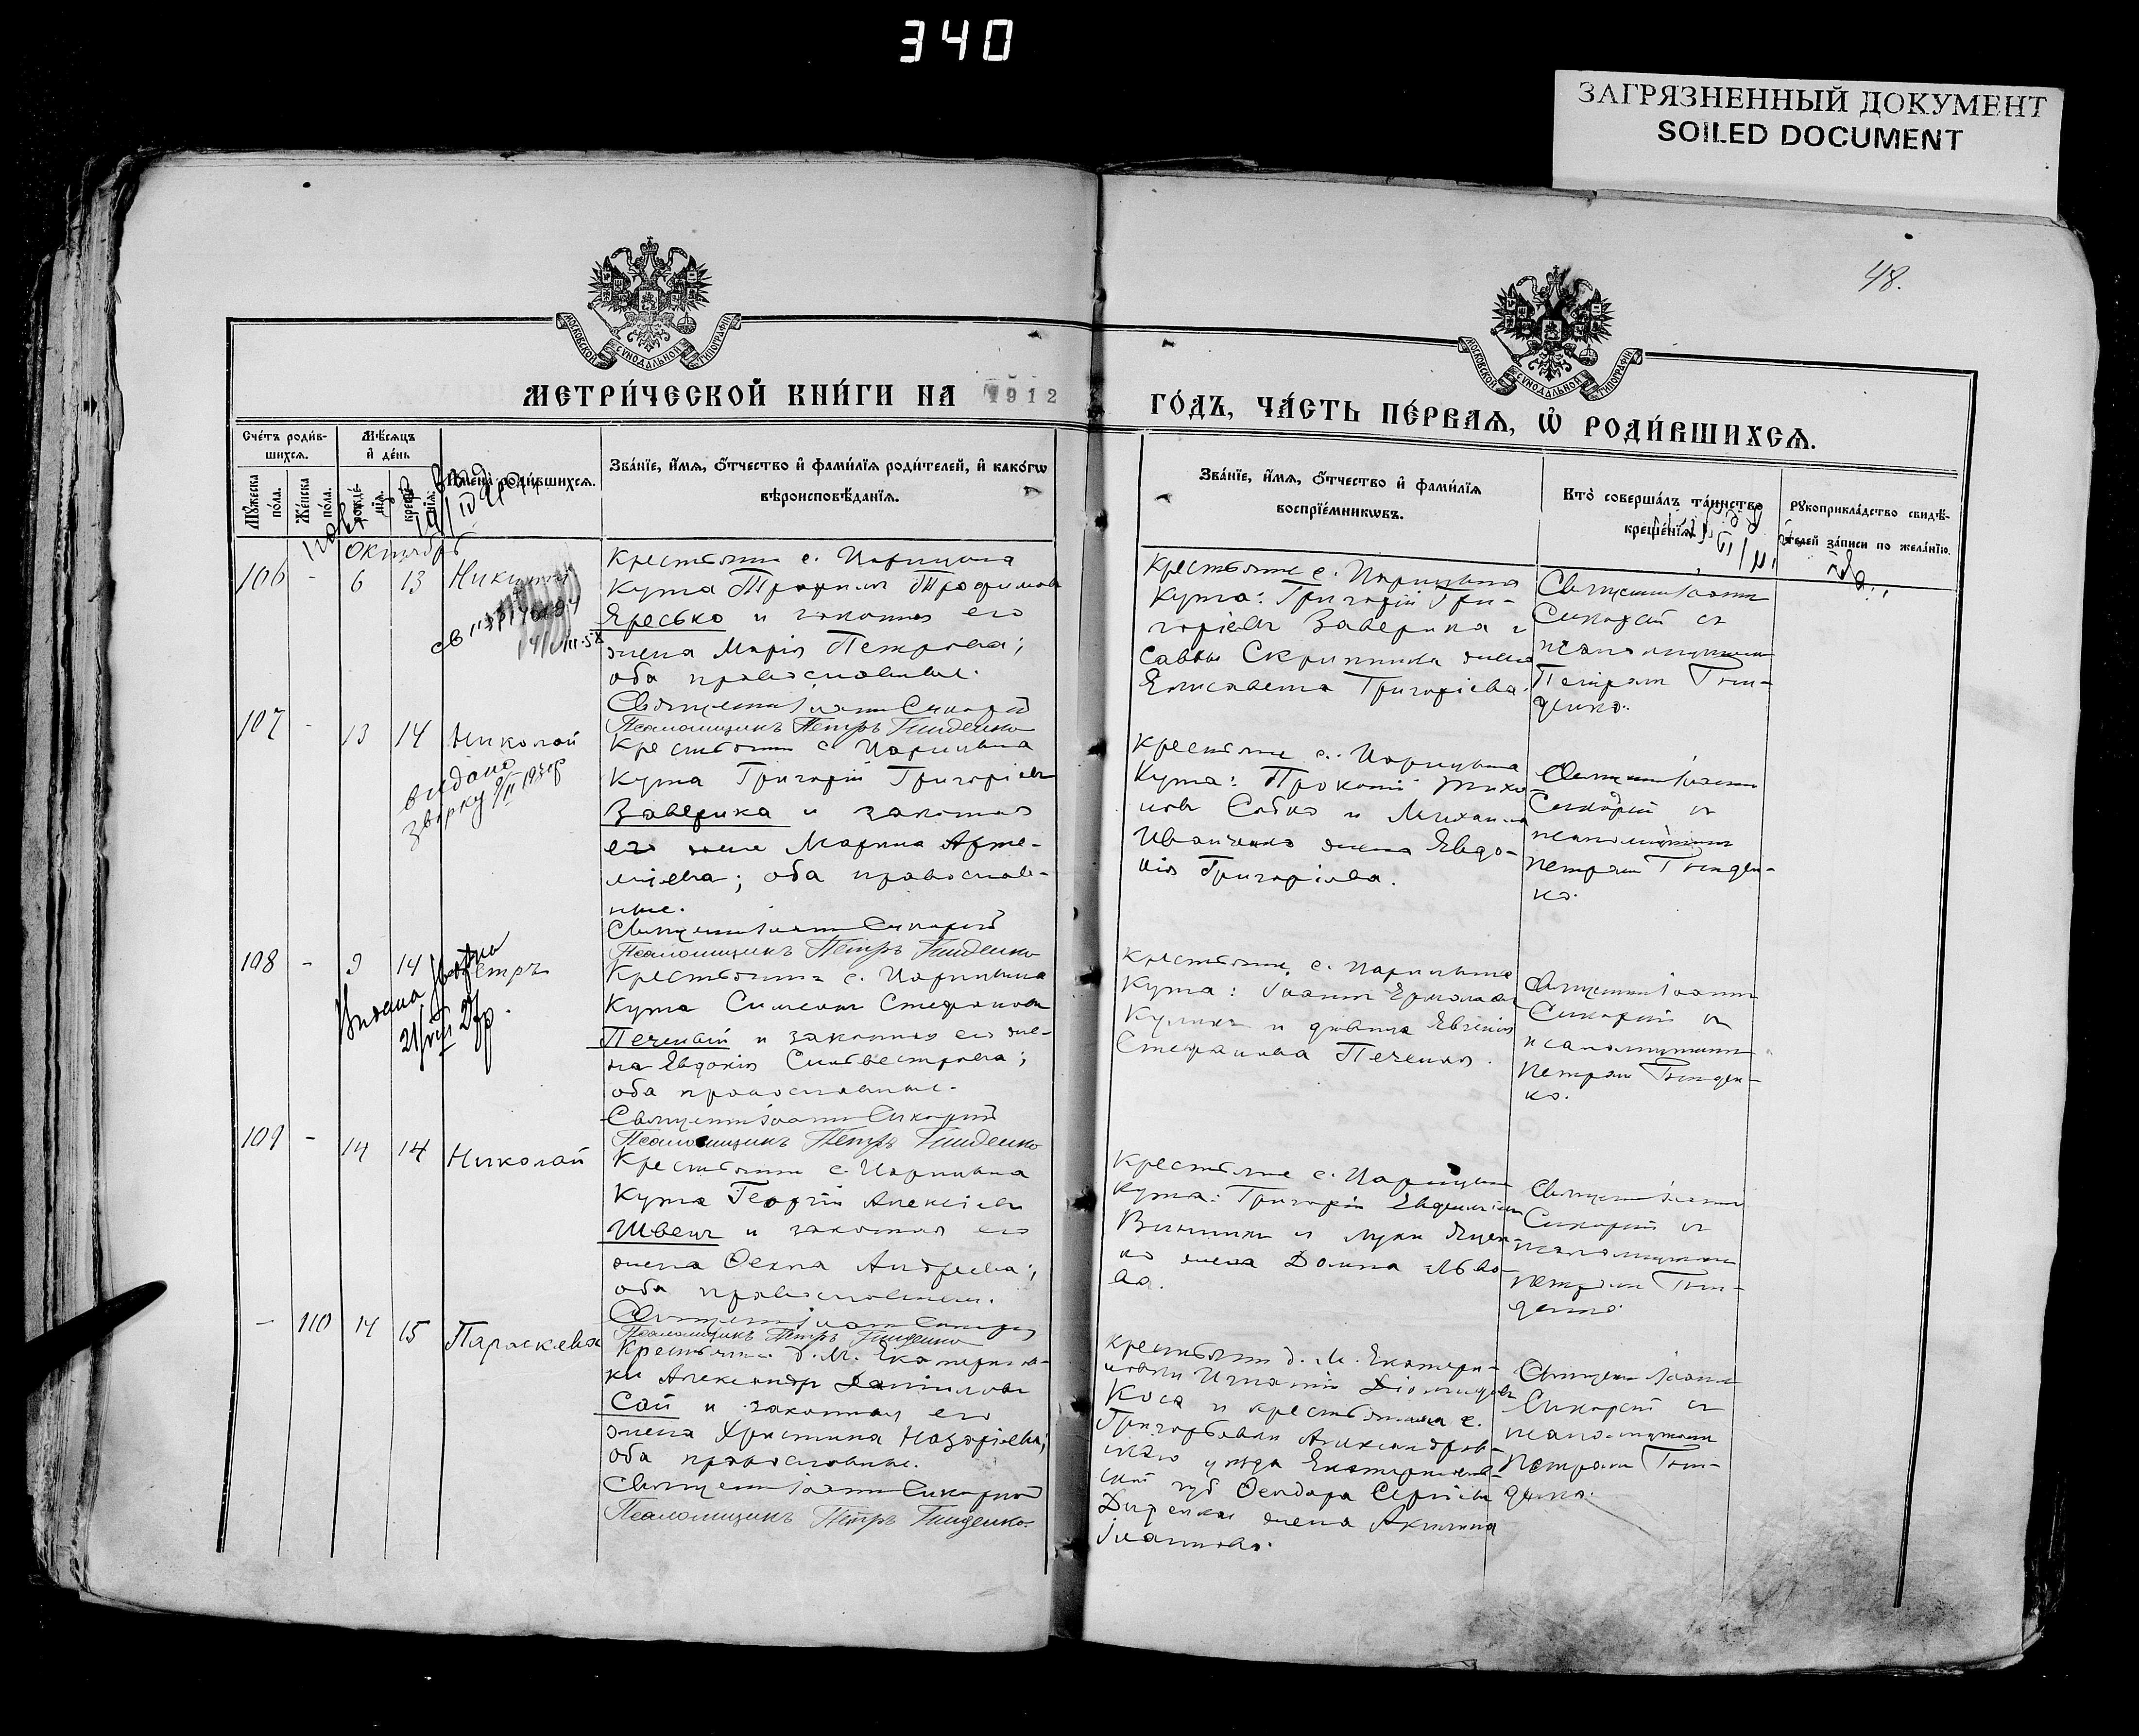 340
ЗАГРЯЗНЕННЫЙ ДОКУМЕНТ
SOILED DOCUMENT
48.
МОСКОВСКОЙ СУНОДАЛЬНОЙ ТИПОГРАФІИ
МОСКОВСКОЙ СУНОДАЛЬНОЙ ТИПОГРАФІИ
МЕТРИ́ЧЕСКОЙ КНИ́ГИ НА 1912
ГО́ДЪ, ЧА́СТЬ ПЕ́РВАѦ, Ѡ҆ РОДИ́ВШИХСѦ.
Сче́тъ роди́в-
шихсѧ.
Мꙋ́жеска по́ла.
Же́нска по́ла.
Мѣ́сѧцъ
и҆ де́нь
рожде́-
нїѧ.
креще́-
нїѧ.
И҆мена̀ роди́вшихсѧ.
Зва́нїе, и҆́мѧ, ѻ҆́тчество и҆ фами́лїѧ роди́телей, и҆ како́гѡ
вѣроисповѣ́данїѧ.
Зва́нїе, и҆́мѧ, ѻ҆́тчество и҆ фами́лїѧ
воспрїе́мникѡвъ.
Кто̀ соверша́лъ та́инство
креще́нїѧ.
Рꙋкоприкла́дство свидѣ́-
телей за́писи по жела́нїю.
Октябрь
106 - 6 13 Никита
Крестьянин с. Царицына
Кута Трофим Трофимов
Яресько и законная его
жена Марія Петрова;
оба православные.
Священник Іоанн Сикорский
Псаломщикъ Петръ Гниденко
Крестьяне с. Царицына
Кута: Григорій Гри-
горіев Заверика и
Саввы Скрипника жена
Елисавета Григоріева.
Священник Іоанн
Сикорский с
псаломщиком
Петром Гни-
денко.
107 - 13 14 Николай
видано
1930р
Крестьянин с. Царицына
Кута Григорій Григоріев
Заверика и законная
его жена Марина Арте-
міева; оба православ-
ные.
Священник Іоанн Сикорский
Псаломщикъ Петръ Гниденко
Крестьяне с. Царицына
Кута: Прокопій
Собко и Михаила
Иванченко жена Евдо-
кія Григоріева.
Священник Іоанн
Сикорский с
псаломщиком
Петром Гниден-
ко.
108 - 9 14 Петръ
Видана
21/VIII 27р.
Крестьянин с. Царицына
Кута Симеон Стефанов
Печеный и законная его же-
на Евдокія Сильвестрова;
оба православные.
Священник Іоанн Сикорский
Псаломщикъ Петръ Гниденко
Крестьяне с. Царицына
Кута: Іоанн Ермолаев
Кулик и девица Евгенія
Стефанова Печеная.
Священник Іоанн
Сикорский с
псаломщиком
Петром Гниден-
ко.
109 - 14 14 Николай
Крестьянин с. Царицына
Кута Георгій Алексіев
Швец и законная его
жена Фекла Андреева;
оба православные.
Священник Іоанн Сикорский
Псаломщикъ Петръ Гниденко
Крестьяне с. Царицына
Кута: Григорій Евфиміев
Винник и Луки Яцен-
ко жена Домна Льво-
ва.
Священник Іоанн
Сикорский с
псаломщиком
Петром Гни-
денко.
- 110 14 15 Параскева
Крестьянин д. М. Екатеринов-
ки Александр Данилов
Сай и законная его
жена Христина Назаріева;
оба православные.
Священник Іоанн Сикорский
Псаломщикъ Петръ Гниденко.
Крестьянин д. М. Екатери-
новки Игнатій Діомидов
Коса и крестьянина с.
Григорьевки Александров-
скаго уезда Екатеринослав-
ской губ Феодора Сергіева
жена Акилина
Іоаннова.
Священник Іоанн
Сикорский с
псаломщиком
Петром Гни-
денко.